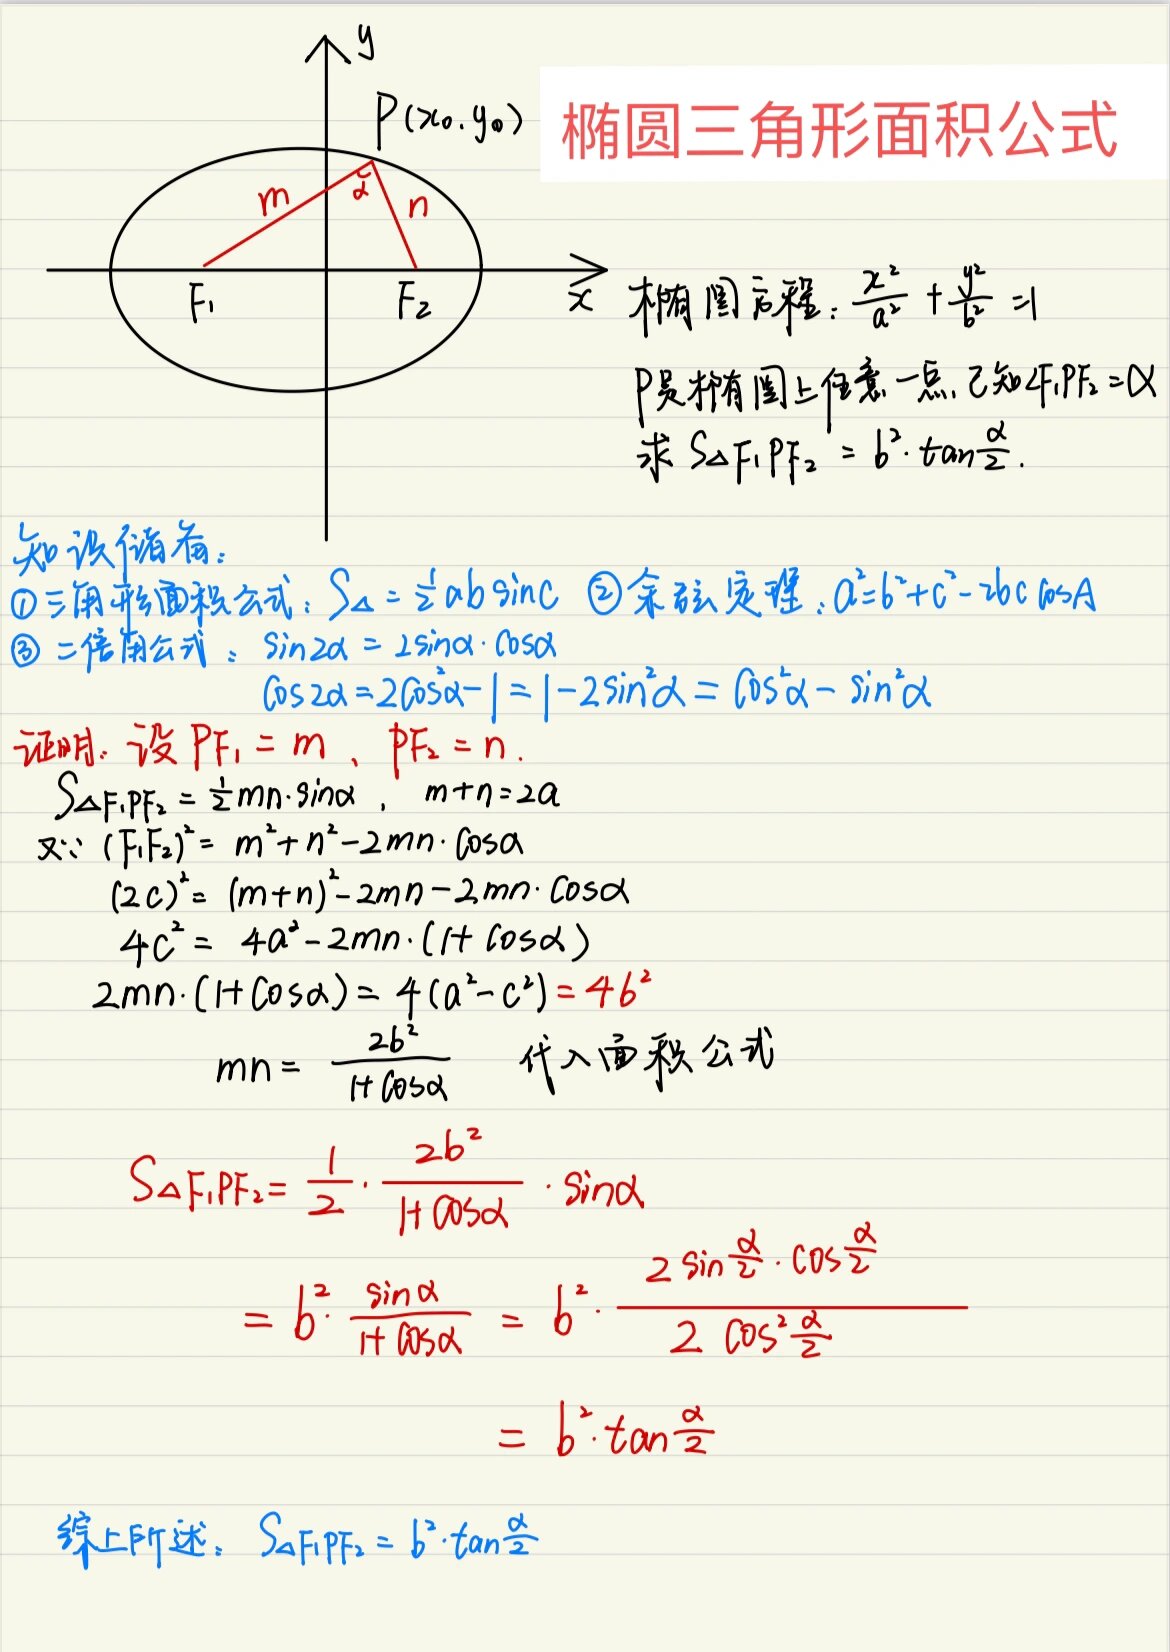 y
P(x₀.y₀)
椭圆三角形面积公式
m
α
n
F₁
F₂
x
椭圆方程：x²/a² + y²/b² =1
P是椭圆上任意一点，已知∠F₁PF₂=α
求 S△F₁PF₂ = b²·tan α/2.
知识储备：
①三角形面积公式：S△ = ½absinC ②余弦定理：a²=b²+c²-2bc cosA
③二倍角公式：sin2α = 2sinα·cosα
cos2α=2cos²α-1=1-2sin²α = cos²α - sin²α
证明：设PF₁ = m、PF₂ = n.
S△F₁PF₂ = ½mn·sinα , m+n=2a
又∵(F₁F₂)² = m²+n²-2mn·cosα
(2c)² = (m+n)²-2mn-2mn·cosα
4c² = 4a²-2mn·(1+cosα)
2mn·(1+cosα) = 4(a²-c²) = 4b²
mn = 2b²/(1+cosα) 代入面积公式
S△F₁PF₂ = 1/2 · 2b²/(1+cosα) · sinα
= b²· sinα/(1+cosα) = b² · (2 sin α/2 · cos α/2)/(2 cos² α/2)
= b²·tan α/2
综上所述：S△F₁PF₂ = b²·tan α/2